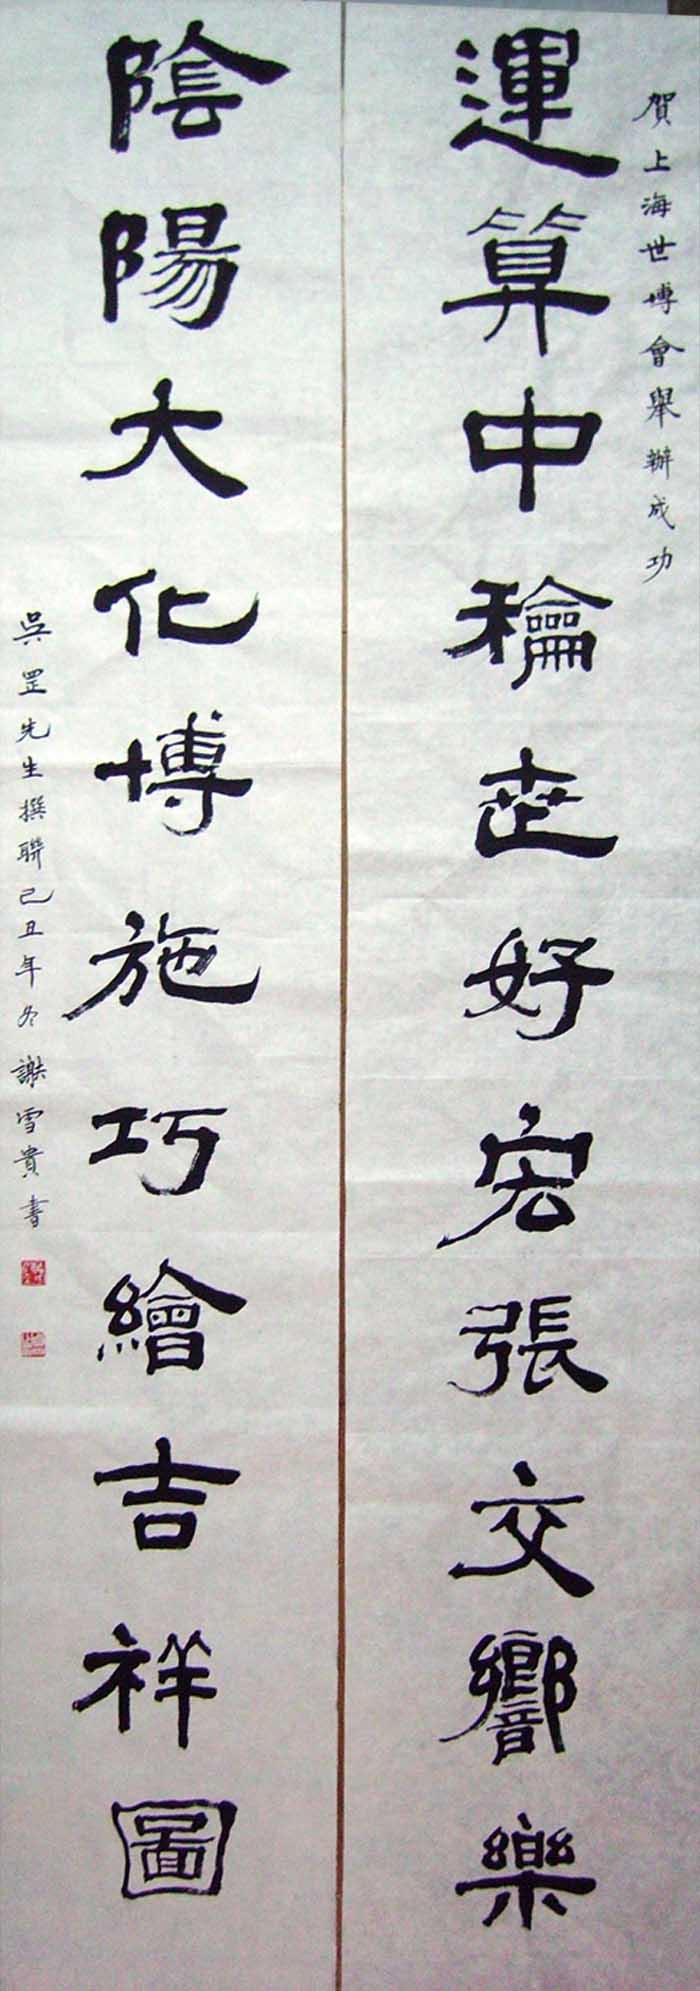 賀上海世博會舉辦成功
運算中龢世好宏張交響樂
陰陽大化博施巧繪吉祥圖
吳罡先生撰聯己丑年冬謝雪貴書